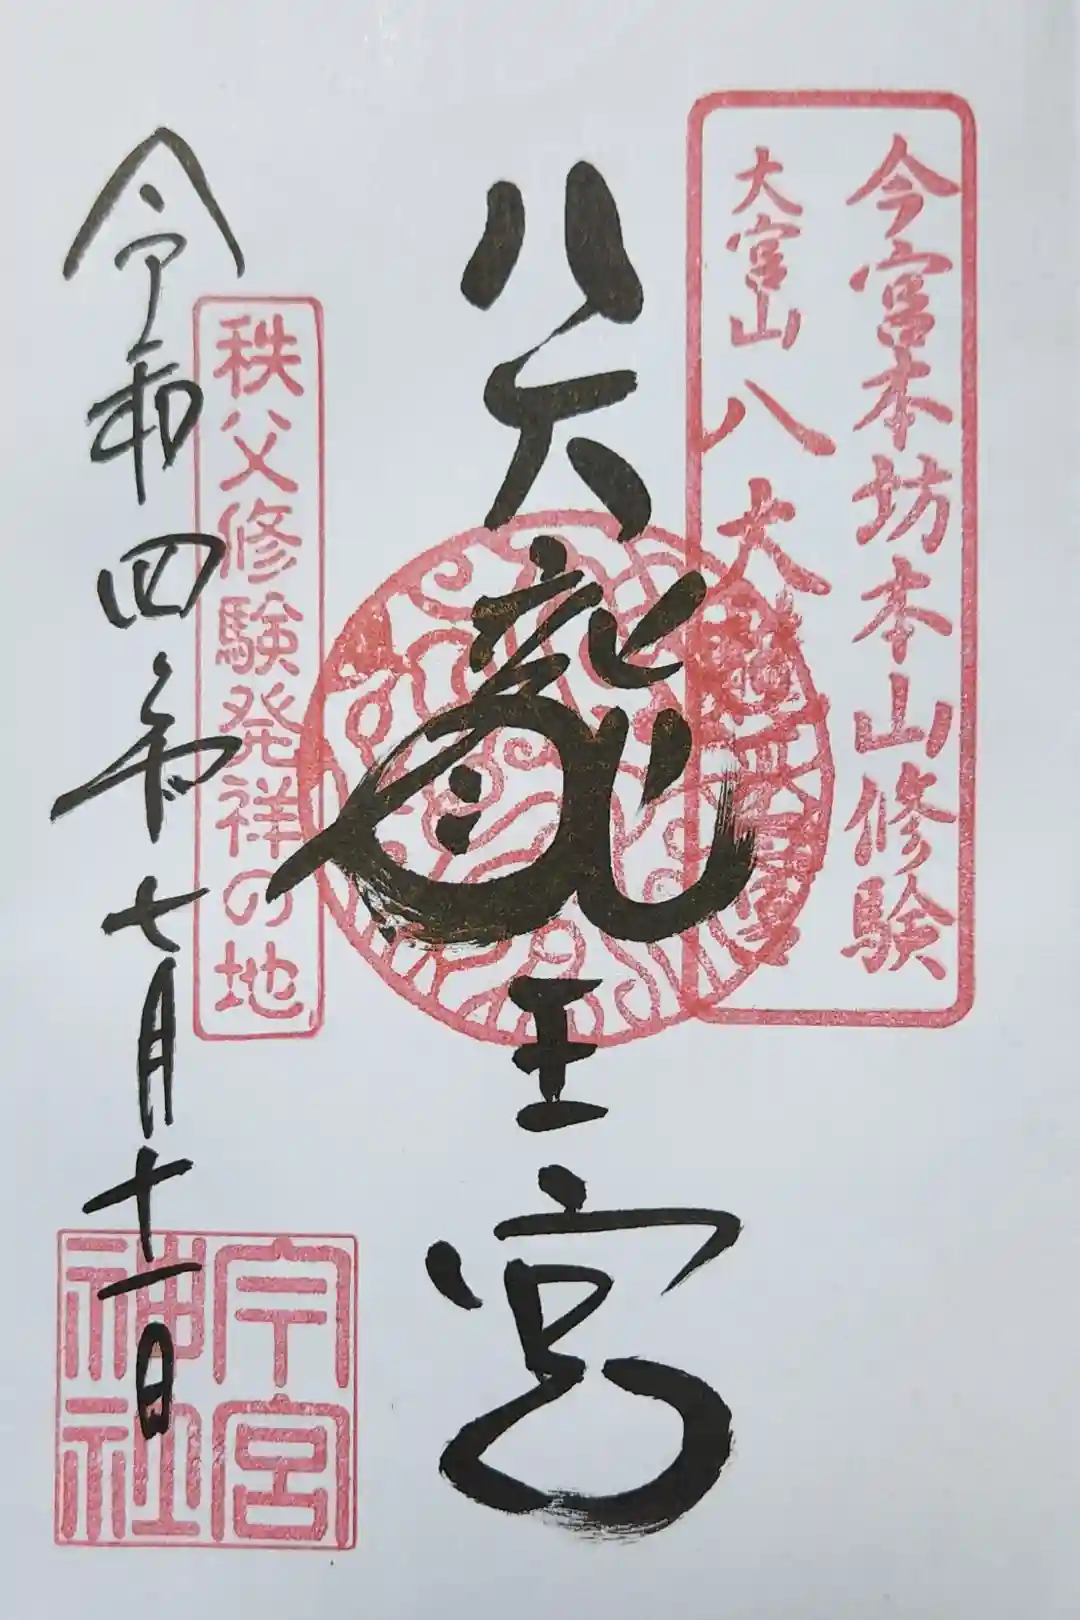 今宮本坊本山修験
大宮山八大龍王宮
八大龍王宮
秩父修験発祥の地
令和四年七月十一日
今宮
神社